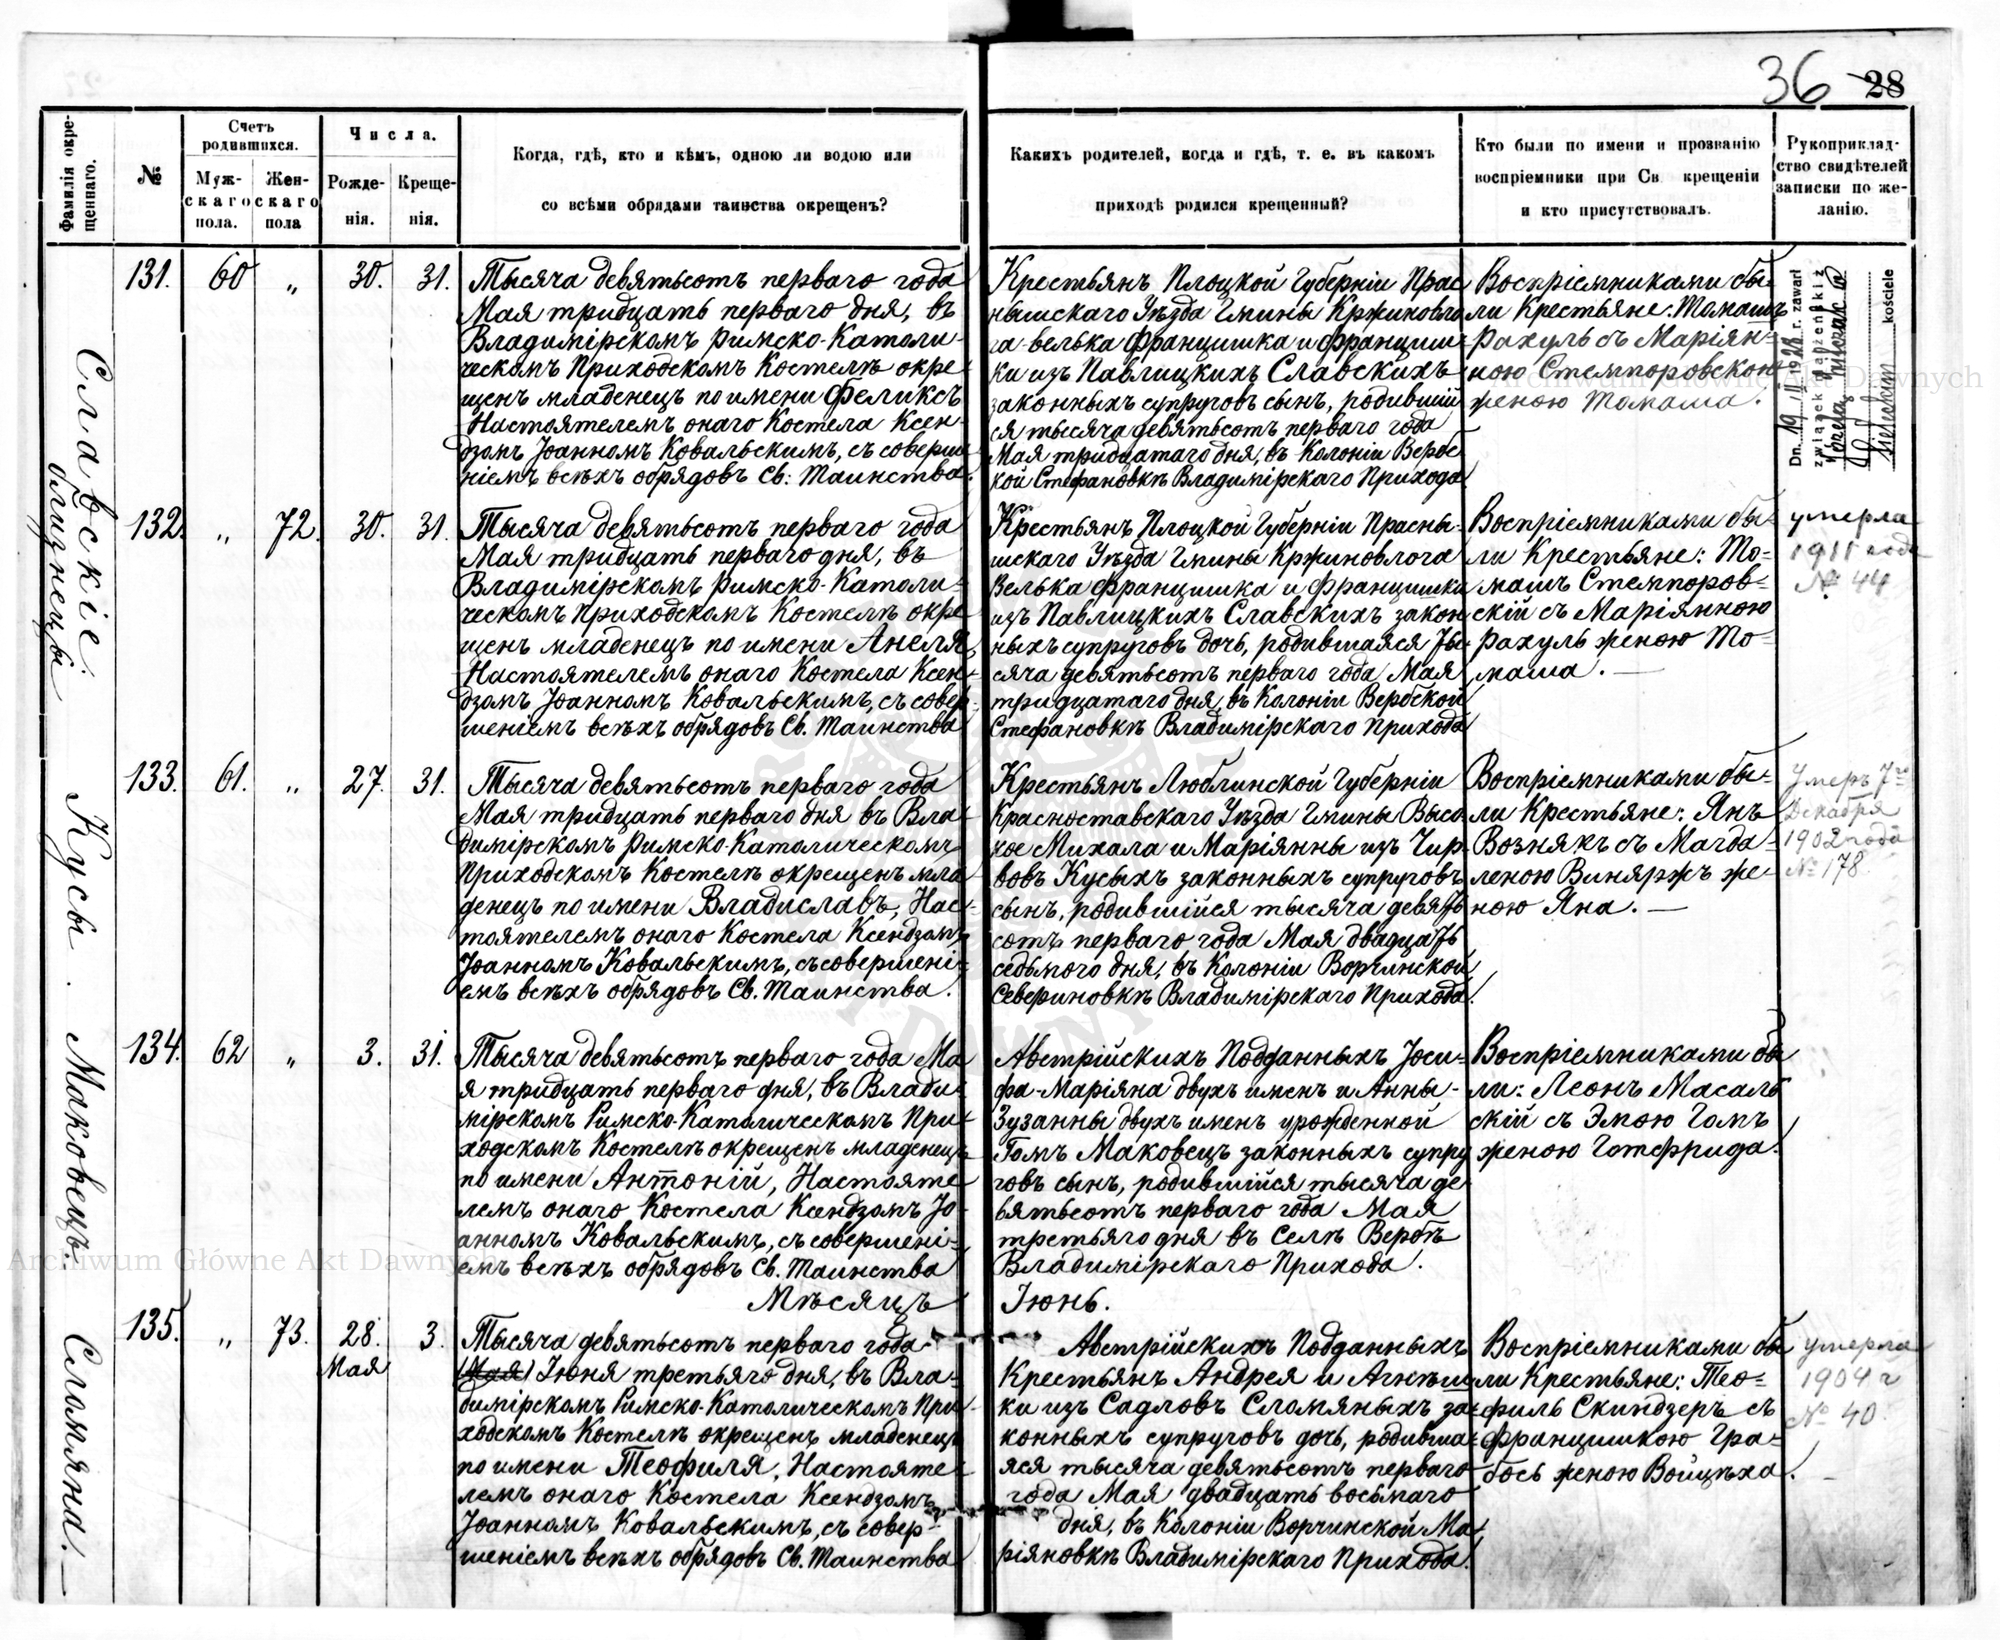 36 28
Фамилія окрещеннаго.
№
Счетъ родившихся.
Мужскаго пола.
Женскаго пола
Числа.
Рожденія.
Крещенія.
Когда, гдѣ, кто и кѣмъ, одною ли водою или
со всѣми обрядами таинства окрещенъ?
Какихъ родителей, когда и гдѣ, т. е. въ какомъ
приходѣ родился крещенный?
Кто были по имени и прозванію
воспріемники при Св крещеніи
и кто присутствовалъ.
Рукоприклад-
ство свидѣтелей
записки по же-
ланію.
Славскіе
близнецы
131. 60 „ 30. 31.
Тысяча девятьсотъ перваго года
Мая тридцать перваго дня, въ
Владимірскомъ Римско-Католи-
ческомъ Приходскомъ Костелѣ окре
щенъ младенецъ по имени Феликсъ
Настоятелемъ онаго Костела Ксен-
дзомъ Іоанномъ Ковальскимъ, съ соверше
ніемъ всѣхъ обрядовъ Св: Таинства.
Крестьянъ Плоцкой Губерніи Прас
нышскаго Уѣзда Гмины Кржиновло
га велька Францишка и Францишки
ки изъ Павлицкихъ Славскихъ
законныхъ супруговъ сынъ, родившій
ся тысяча девятьсотъ перваго года
Мая тридцатаго дня, въ Колоніи Вербс
кой Стефановкѣ Владимірскаго Прихода
Воспріемниками бы-
ли Крестьяне: Томашъ
Рахуль съ Маріян-
ною Стемпоровскою
женою Томаша.
Dn. 19 II 1928 r. zawarł
związek małżeński z
kościele
132. „ 72. 30. 31.
Тысяча девятьсотъ перваго года
Мая тридцать перваго дня, въ
Владимірскомъ Римско-Католи-
ческомъ Приходскомъ Костелѣ окре
щенъ младенецъ по имени Анеля,
Настоятелемъ онаго Костела Ксен-
дзомъ Іоанномъ Ковальскимъ, съ совер-
шеніемъ всѣхъ обрядовъ Св. Таинства
Крестьянъ Плоцкой Губерніи Прасны-
шскаго Уѣзда Гмины Кржиновлога
Велька Францишка и Францишки
изъ Павлицкихъ Славскихъ закон
ныхъ супруговъ дочь, родившаяся ты-
сяча девятьсотъ перваго года Мая
тридцатаго дня, въ Колоніи Вербской
Стефановкѣ Владимірскаго Прихода
Воспріемниками бы-
ли Крестьяне: То-
машъ Стемпоров-
скій съ Маріянною
Рахуль женою То-
маша. —
умерла
1911 года
№ 44
Кусы.
133. 61. „ 27. 31.
Тысяча девятьсотъ перваго года
Мая тридцать перваго дня въ Вла
димірскомъ Римско-Католическомъ
Приходскомъ Костелѣ окрещенъ мла
денецъ по имени Владиславъ, Нас-
тоятелемъ онаго Костела Ксендзомъ
Іоанномъ Ковальскимъ, съ совершені-
емъ всѣхъ обрядовъ Св. Таинства.
Крестьянъ Люблинской Губерніи
Красноставскаго Уѣзда Гмины Высо
кое Михала и Маріянны изъ Чир-
вовъ Кусыхъ законныхъ супруговъ
сынъ, родившійся тысяча девять
сотъ перваго года Мая двадцать
седьмого дня, въ Колоніи Ворчинской
Севериновкѣ Владимірскаго Прихода.
Воспріемниками бы-
ли Крестьяне: Янъ
Вознякъ съ Магда-
леною Виняржъ же-
ною Яна. —
Умеръ 7го
Декабря
1902 года
№ 178
Маковецъ.
134. 62 „ 3. 31.
Тысяча девятьсотъ перваго года Ма
я тридцать перваго дня, въ Влади-
мірскомъ Римско-Католическомъ При-
ходскомъ Костелѣ окрещенъ младенецъ
по имени Антоній, Настояте-
лемъ онаго Костела Ксендзомъ Іо-
анномъ Ковальскимъ, съ совершені-
емъ всѣхъ обрядовъ Св. Таинства
Австрійскихъ Подданныхъ Іоси-
фа-Маріяна двухъ именъ и Анны-
Зузанны двухъ именъ урожденной
Гомъ Маковецъ законныхъ супру
говъ сынъ, родившійся тысяча де
вятьсотъ перваго года Мая
третьяго дня въ Селѣ Вербѣ
Владимірскаго Прихода.
Воспріемниками бы
ли: Леонъ Масаль
скій съ Эмою Гомъ
женою Готфрида.
Мѣсяцъ Іюнь.
Сломяна. —
135. „ 73. 28. Мая 3.
Тысяча девятьсотъ перваго года
(Мая) Іюня третьяго дня, въ Вла-
димірскомъ Римско-Католическомъ При-
ходскомъ Костелѣ окрещенъ младенецъ
по имени Теофиля, Настояте-
лемъ онаго Костела Ксендзомъ
Іоанномъ Ковальскимъ, съ совер-
шеніемъ всѣхъ обрядовъ Св. Таинства
Австрійскихъ Подданныхъ
Крестьянъ Андрея и Агнѣш
ки изъ Садловъ Сломяныхъ за-
конныхъ супруговъ дочь, родивша-
яся тысяча девятьсотъ перваго
года Мая двадцать восьмаго
дня, въ Колоніи Ворчинской Ма
ріяновкѣ Владимірскаго Прихода.
Воспріемниками бы
ли Крестьяне: Тео-
филь Скиндзеръ съ
Францишкою Гра-
бось женою Войцѣха. —
умерла
1904 г
№ 40.
Archiwum Główne Akt Dawnych
Archiwum Główne Akt Dawnych